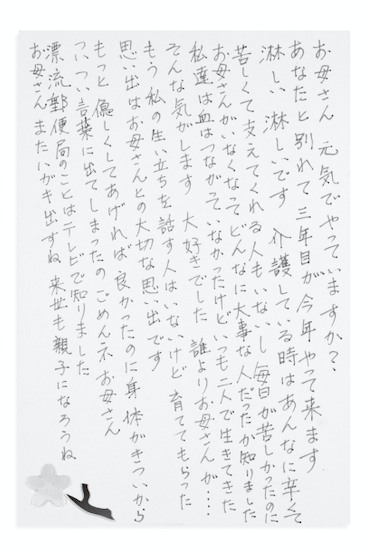 お母さん 元気でやっていますか?
あなたと別れて三年目が今年やって来ます
淋しい 淋しいです 介護している時はあんなに辛くて
苦しくて支えてくれる人もいないし毎日が苦しかったのに
お母さんがいなくなってどんなに大事な人だったか知りました
私達は血はつながっていなかったけどいつも二人で生きてきた
そんな気がします 大好きでした 誰よりお母さんが....
もう私の生い立ちを話す人はいないけど 育ててもらった
思い出はお母さんとの大切な思い出です
もっと優しくしてあげれば良かったのに身体がきついから
ついつい言葉に出てしまったのごめんネお母さん
漂流郵便局のことはテレビで知りました
お母さんまたハガキ出すね 来世も親子になろうね